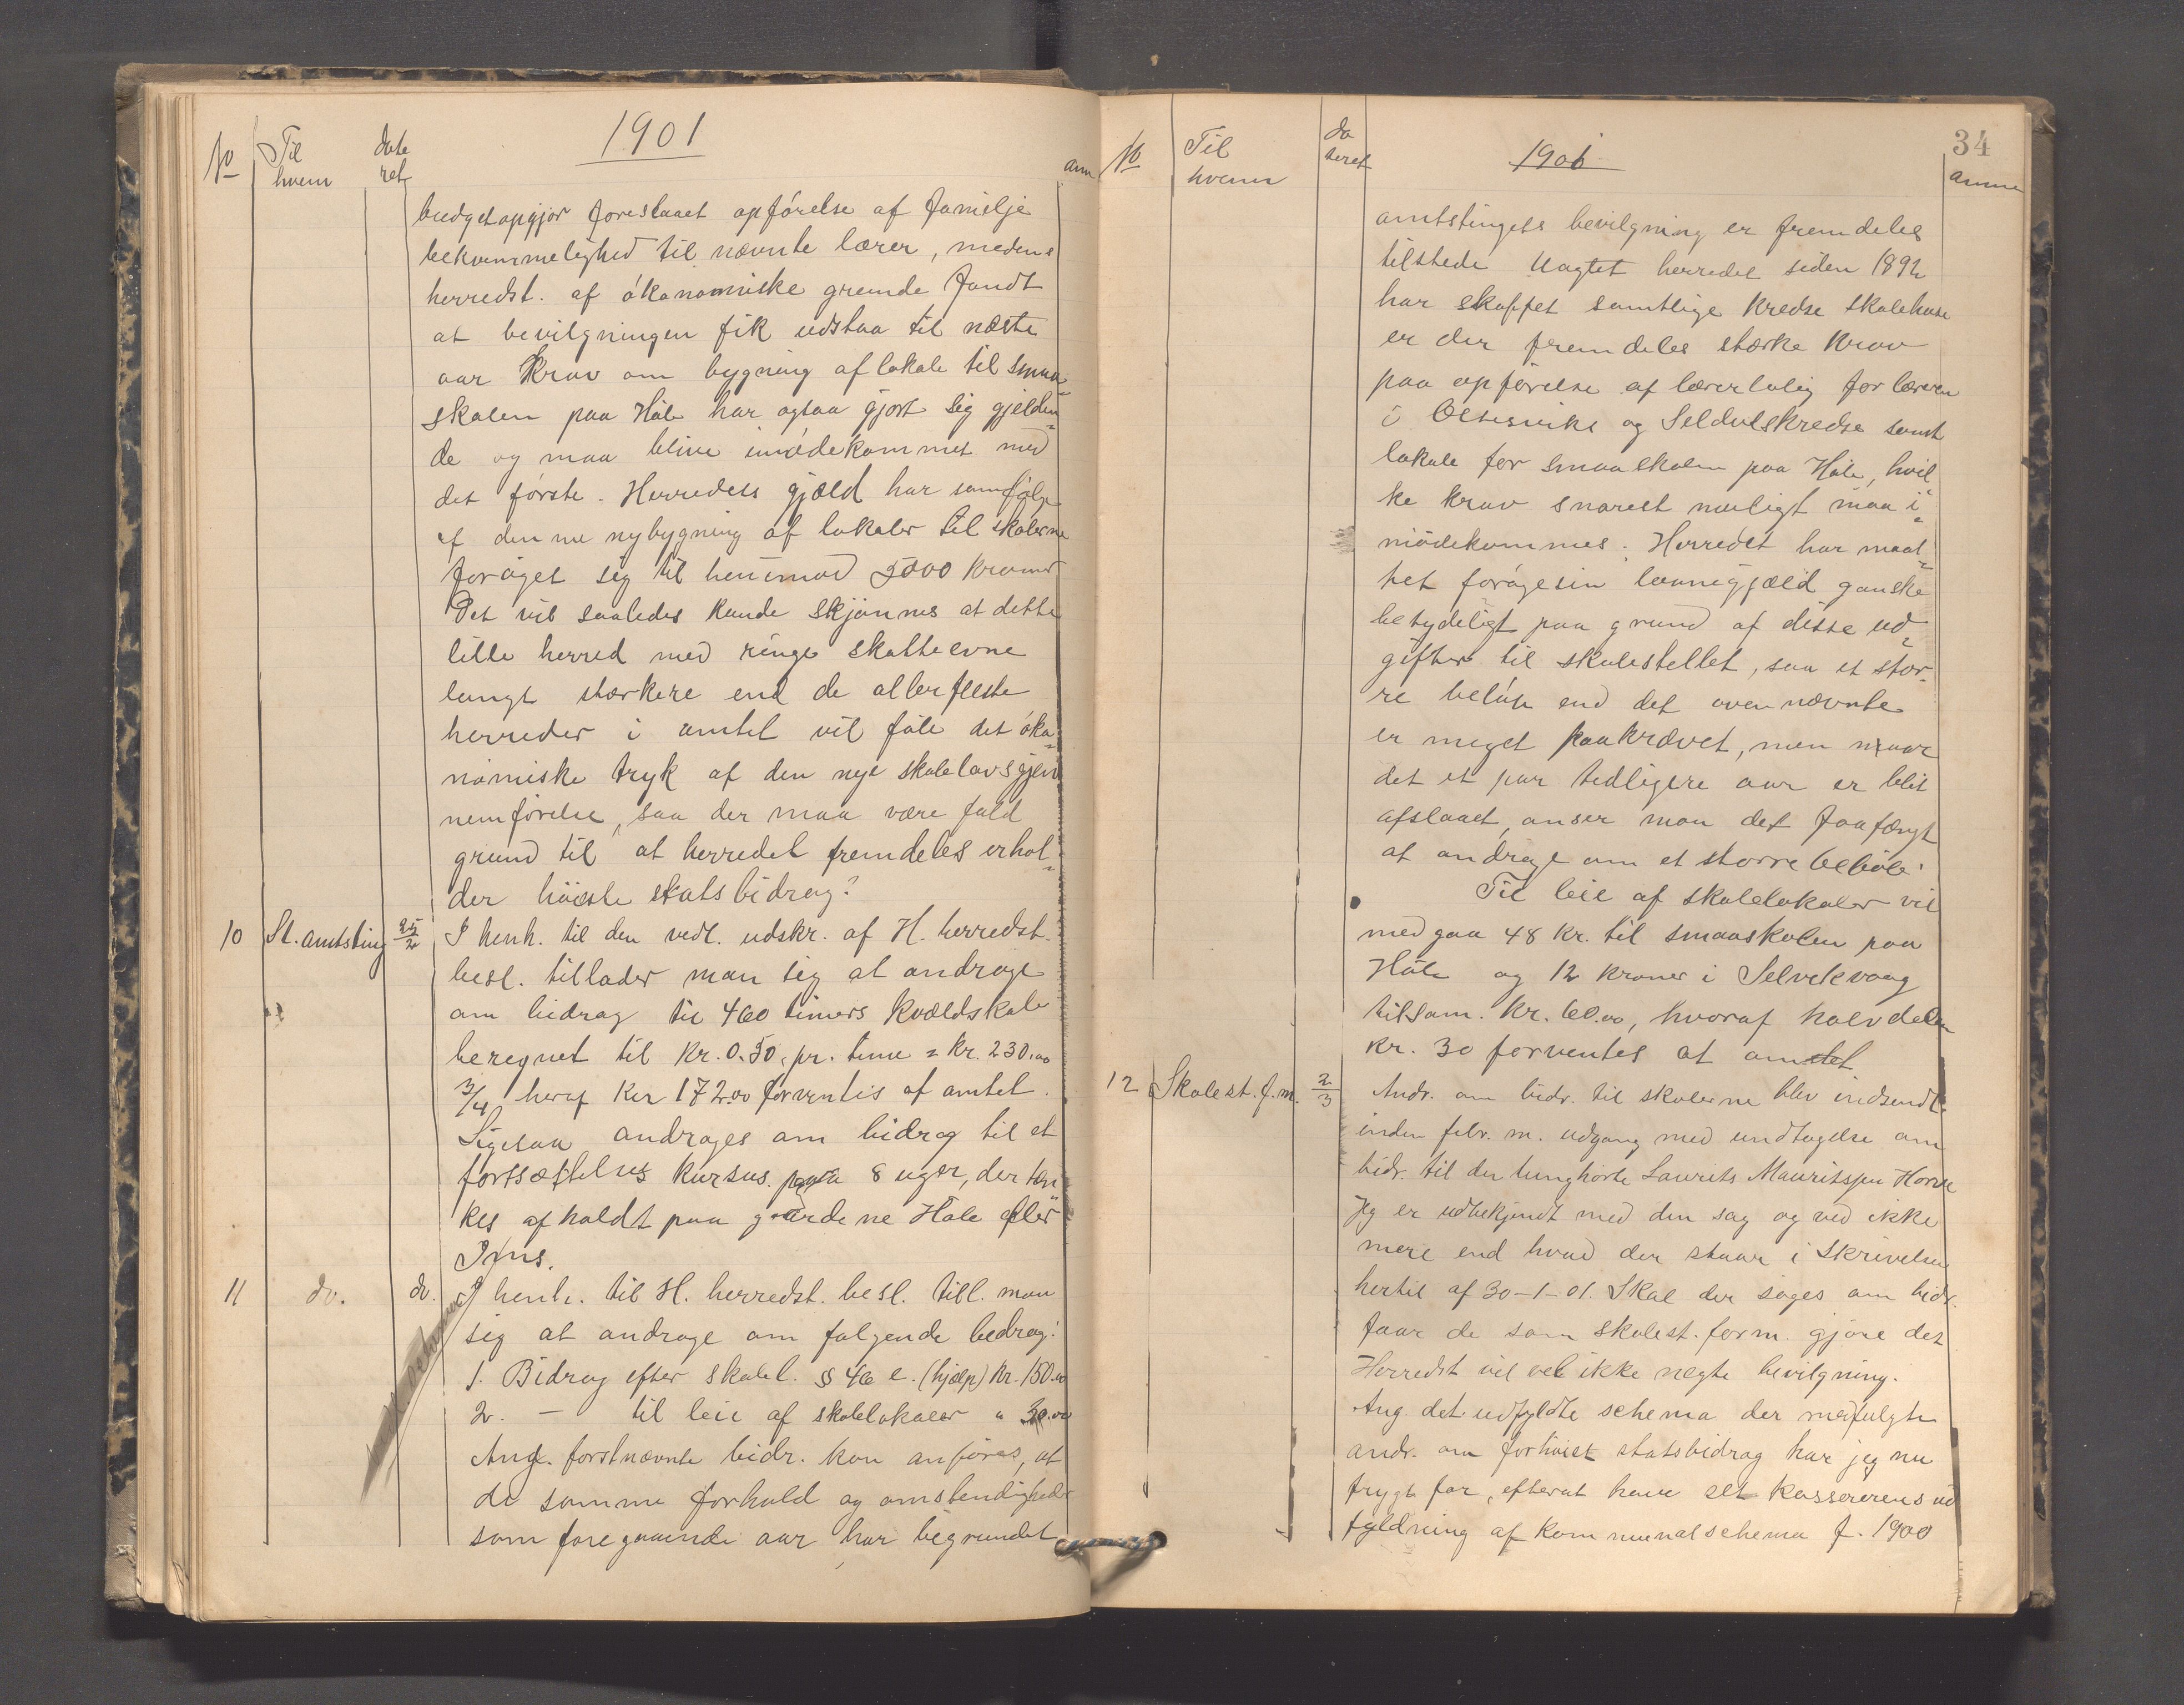 1901
No
Til
hvem
date
ret
anm
budgetopgjør foreslaaet opførelse af familje
bekvemmelighed til nævnte lærer, medens
herredst. af økonomiske grunde fandt
at bevilgningen fik udstaa til næste
aar Krav om bygning af lokale til smaa-
skolen paa Håle har ogsaa gjort sig gjelden-
de og maa blive imødekommet med
det første. Herredets gjæld har som følge
af denne nybygning af lokaler til skolerne
forøget sig til henimod 5000 kroner
Det vil saaledes kunde skjønnes at dette
lille herred med ringe skatteevne
langt stærkere end de allerfleste
herreder i amtet vil føle det øko-
nomiske tryk af den nye skolelovs gjen
nemførelse, saa der maa være fuld
grund til at herredet fremdeles erhol-
der høieste statsbidrag?
10 St. amtsting 25/2 I henh. til den vedl. udskr. af H. herredst.
besl. tillader man sig at andrage
om bidrag til 460 timers kvældskole
beregnet til Kr. 0.50 pr. time = kr. 230.00
3/4 heraf Kr 172.00 forventes af amtet.
Ligesaa andrages om bidrag til et
fortsættelses kursus. paa 8 uger, der tæn-
kes afholdt paa gaardene Håle eller
Ims.
11 do. do. I henh. til H. herredst. besl. till. man
sig at andrage om følgende bedrag:
1. Bidrag efter skolel. § 46 e. (hjælp) kr. 150.00
2. — til leie af skolelokaler " 30.00
Ang. førstnævnte bidr. kan anføres, at
de samme forhold og omstendigheder
som foregaaende aar har begrundet
34
1901
No
Til
hvem
da
teret
anm
amtstingets bevilgning er fremdeles
tilstede Uagtet herredet siden 1892
har skaffet samtlige kredse skolehuse
er der fremdeles stærke krav
paa opførelse af lærerbolig for læreren
i Oltesviks og Seldalskredse samt
lokale for smaaskolen paa Håle, hvil
ke krav snarest muligt maa i-
mødekommes. Herredet har maat-
tet forøge sin laanegjæld ganske
betydeligt paa grund af disse ud-
gifter til skolestellet, saa et stør-
re beløb end det ovennævnte
er meget paakrævet, men naar
det et par tidligere aar er blit
afslaaet, anser man det faafængt
at andrage om et større beløb.
Til leie af skolelokaler vil
medgaa 48 kr. til smaaskolen paa
Håle og 12 kroner i Selvikvaag
tilsam. kr. 60.00, hvoraf halvdelen
kr. 30 forventes at amtet
12 Skolest. f.m. 2/3 Andr. om bidr. til skolerne blev indsendt
inden febr. m. udgang med undtagelse om
bidr. til den tunghørte Laurits Mauritssen Horve
Jeg er udbekjendt med den sag og ved ikke
mere end hvad der staar i Skrivelsen
hertil af 30–1–01. Skal der søges om bidr.
faar de som skolest. form. gjøre det
Herredst vil vel ikke negte bevilgning.
Ang. det udfyldte schema der medfulgte
andr. om forhøiet statsbidrag har jeg nu
frygt for, efterat have set kassererens ud
fyldning af kommunalschema f. 1900